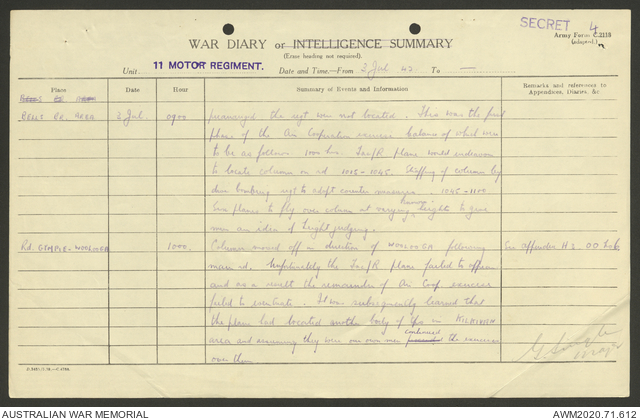 SECRET 4
Army Form C.2118
(adapted.)
WAR DIARY or INTELLIGENCE SUMMARY
(Erase heading not required).
Unit 11 MOTOR REGIMENT. Date and Time—From 3 Jul 42 To —
Place Date Hour Summary of Events and Information Remarks and references to Appendices, Diaries, &c
BELLS BR. AREA 3 Jul. 0900 prearranged the regt was not located. This was the first
phase of the Air Cooperation exercise balance of which were
to be as follows. 1000 hrs. Tac/R plane would endeavour
to locate column on rd 1015 - 1045. Strafing of column by
dive bombing regt to adopt counter measures. 1045 - 1100
plane to fly over column at varying known heights to give
men an idea of height judging.
Rd. GYMPIE - WOOLOOGA 1000. Column moved off in direction of WOOLOOGA following See appendix H 2 OO No 6
main rd. Inexplicably the Tac/R plane failed to appear
and as a result the remainder of Air Coop exercise
failed to eventuate. It was subsequently learned that
the plane had located another body of tps in KILKIVAN
area and assuming they were our own men continued the exercise
over them
Major
AUSTRALIAN WAR MEMORIAL
AWM2020.71.612